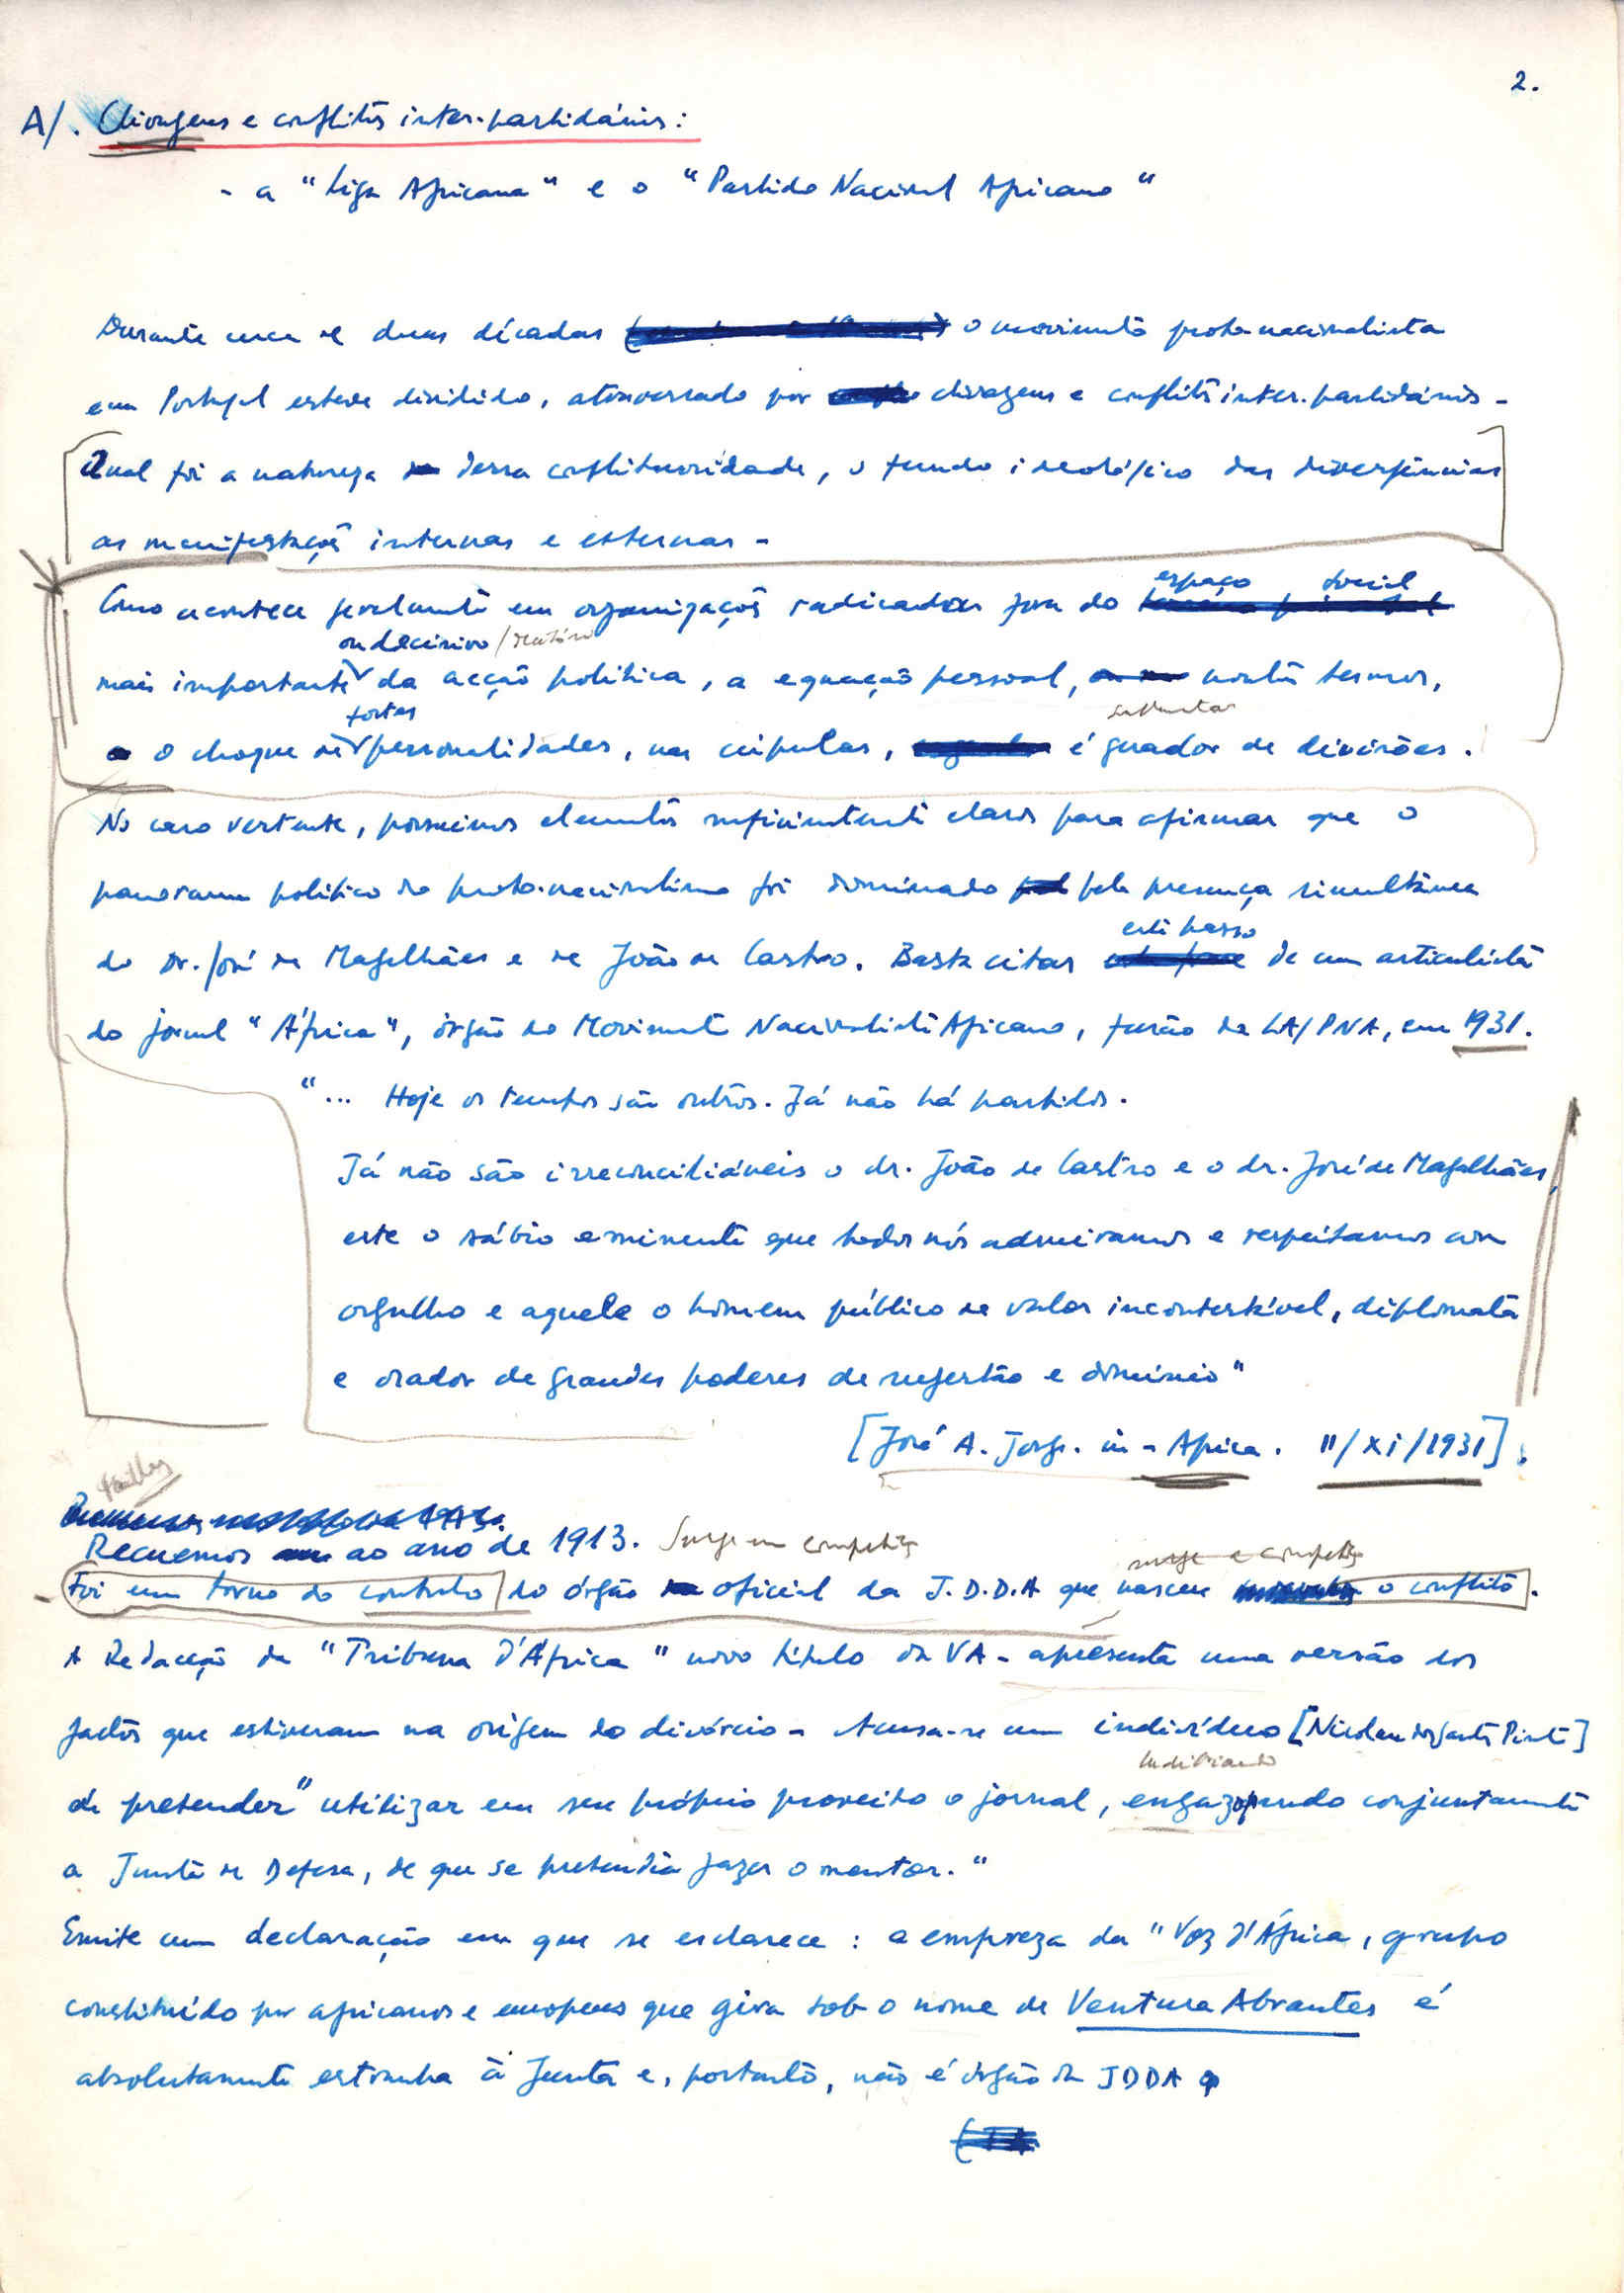 2.
A/. Clivagens e conflitos inter-partidários:
- a "Liga Africana" e o "Partido Nacional Africano"
Durante cerca de duas décadas o movimento proto-nacionalista
em Portugal esteve dividido, atravessado por clivagens e conflitos inter-partidários -
Qual foi a natureza dessa conflituosidade, o fundo ideológico das divergências
as manifestações internas e externas -
espaço social
Como acontece geralmente em organizações radicadas fora do
ou decisivo
mais importante da acção política, a equação pessoal, noutros termos,
fortes
o choque de personalidades, nas cúpulas, é gerador de divisões.
No caso vertente, possuimos elementos suficientemente claros para afirmar que o
panorama político do proto-nacionalismo foi dominado pela presença simultânea
este passo
do Dr. José de Magalhães e de João de Castro. Basta citar de um articulista
do jornal "África", órgão do Movimento Nacionalista Africano, fusão da LA/PNA, em 1931.
"... Hoje os tempos são outros. Já não há partidos.
Já não são irreconciliáveis o dr. João de Castro e o dr. José de Magalhães,
este o sábio eminente que todos nós admiramos e respeitamos com
orgulho e aquele o homem público de valor incontestável, diplomata
e orador de grandes poderes de sugestão e domínio"
[José A. Jorge. in - Africa. 11/XI/1931].
Recuemos ao ano de 1913. Surge em competição
surge a competição
Foi em torno do controlo do órgão oficial da J.D.D.A que nasceu o conflito.
A Redacção da "Tribuna D'África" novo título da VA - apresenta uma versão dos
factos que estiveram na origem do divórcio - Acusa-se um indivíduo [Nicolau dos Santos Pinto]
ludibriando
de pretender "utilizar em seu próprio proveito o jornal, engazopando conjuntamente
a Junta de Defesa, de que se pretendia fazer o mentor."
Emite um declaração em que se esclarece: a empreza da "Voz d'África, grupo
constituído por africanos e europeus que gira sob o nome de Ventura Abrantes é
absolutamente estranha à Junta e, portanto, não é órgão da JDDA